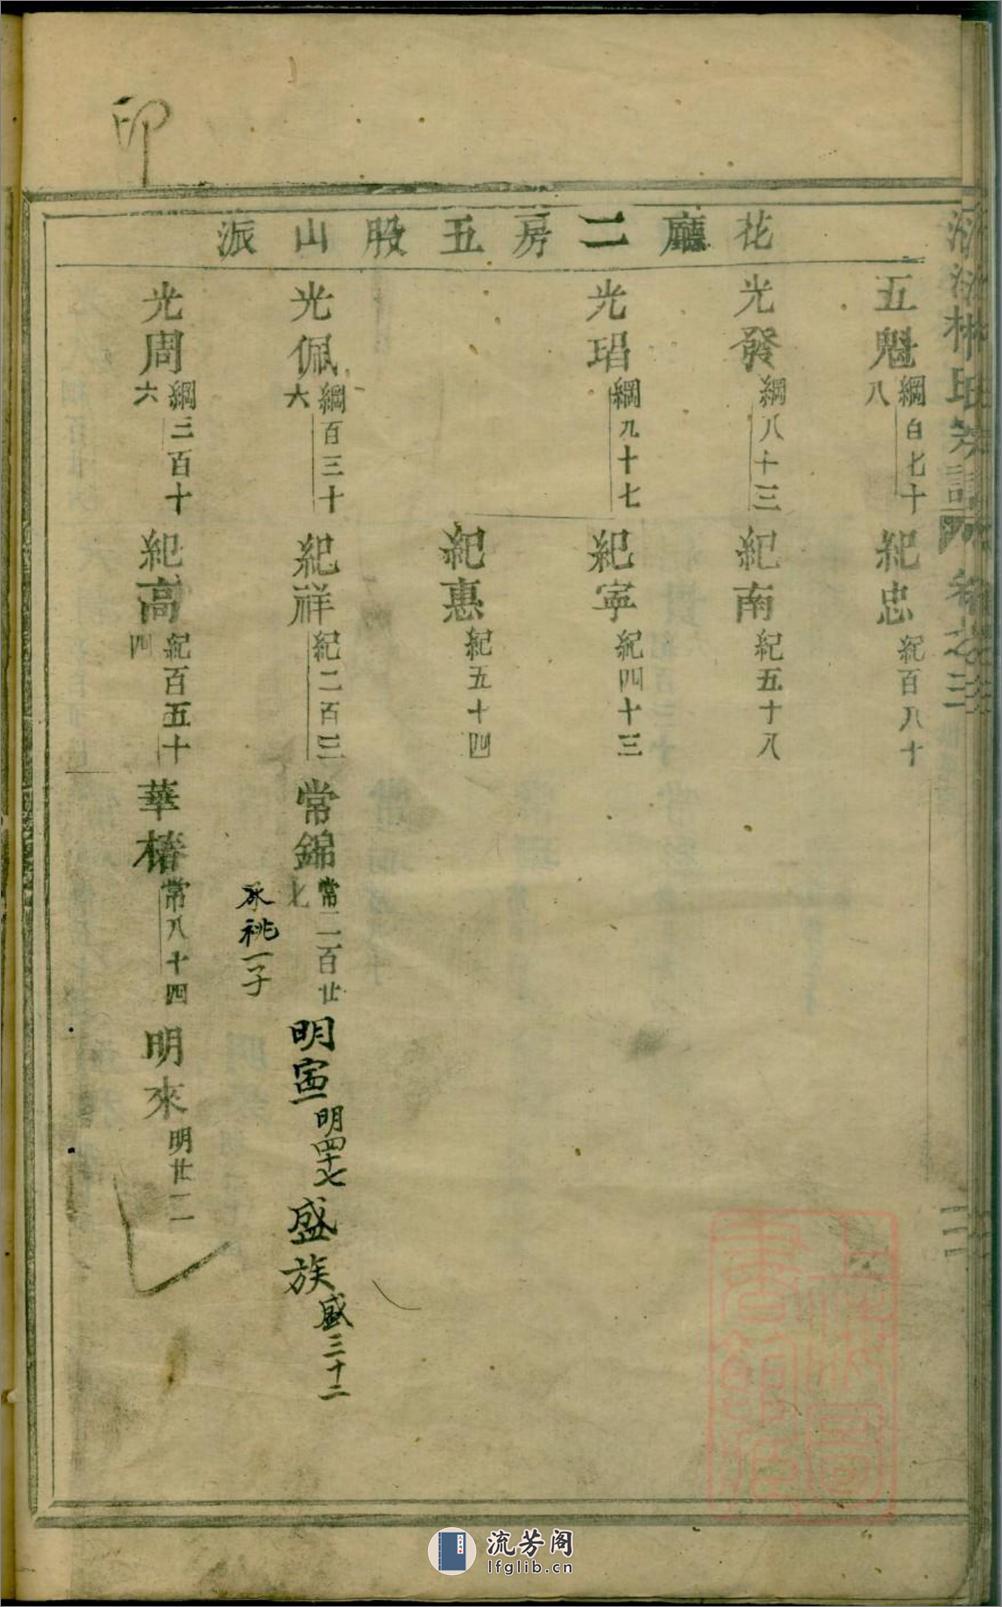 印
花廳二房五股山派
五魁 綱百七十八
紀忠 紀百八十
光發 綱八十三
紀南 紀五十八
光玿 綱九十七
紀寧 紀四十三
紀惠 紀五十四
光佩 綱百三十六
紀祥 紀二百三
常錦 常二百廿七
承祧一子
明寅 明四十七
盛族 盛三十二
光周 綱三百十六
紀高 紀百五十四
華椿 常八十四
明來 明廿二
林氏宗譜
卷之三
流芳阁
lfglib.cn